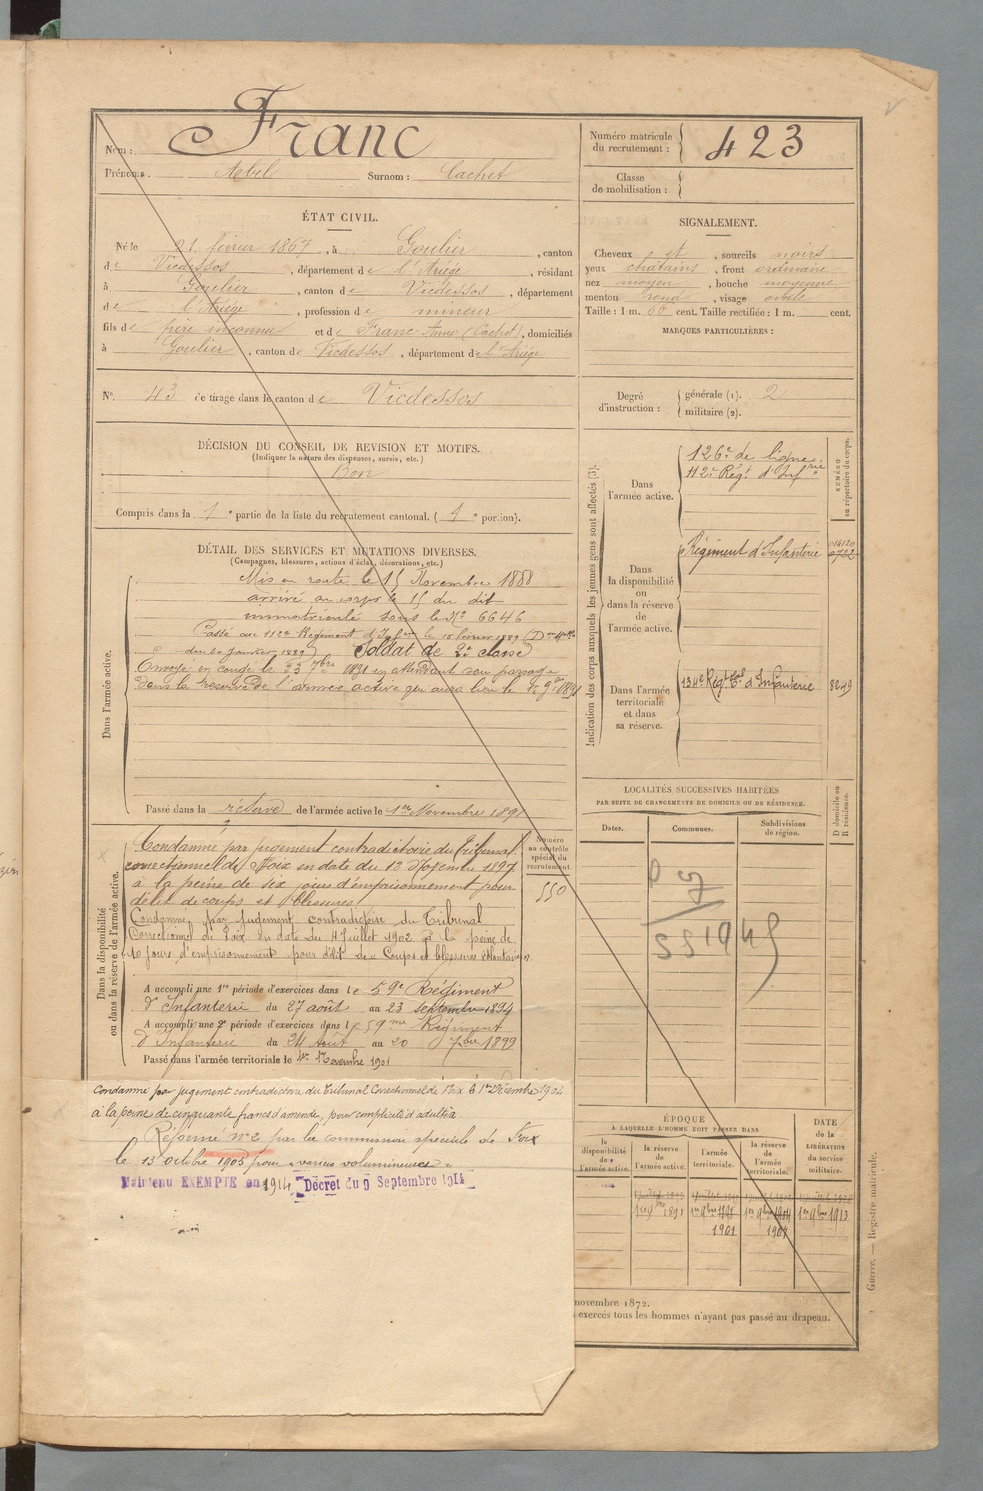 Nom : Franc
Prénoms : Abel Surnom : Cachet
Numéro matricule du recrutement : 423
Classe de mobilisation :
ÉTAT CIVIL.
Né le 21 février 1867, à Goulier, canton
de Vicdessos, département de l'Ariège, résidant
à Goulier, canton de Vicdessos, département
de l'Ariège, profession de mineur
fils de père inconnu et de Franc Anne (Cachet), domiciliés
à Goulier, canton de Vicdessos, département de l'Ariège
N° 43 de tirage dans le canton de Vicdessos
SIGNALEMENT.
Cheveux et, sourcils noirs
yeux chatains, front ordinaire
nez moyen, bouche moyenne
menton rond, visage ovale
Taille : 1 m. 60 cent. Taille rectifiée : 1 m. cent.
MARQUES PARTICULIÈRES :
Degré d'instruction : générale (1). 2
militaire (2).
DÉCISION DU CONSEIL DE REVISION ET MOTIFS.
(Indiquer la nature des dispenses, sursis, etc.)
Bon
Compris dans la 1e partie de la liste du recrutement cantonal. (1e portion).
DÉTAIL DES SERVICES ET MUTATIONS DIVERSES.
(Campagnes, blessures, actions d'éclat, décorations, etc.)
Dans l'armée active.
Mis en route le 15 Novembre 1888
arrivé au corps le 15 du dit
immatriculé sous le N° 6646
Passé au 112e Régiment d'Infrie le 18 février 1889 (Don Melle
du 30 Janvier 1889) Soldat de 2e classe
Envoyé en congé le 23 7bre 1891 en attendant son passage
dans la réserve de l'armée active qui aura lieu le 1er 9bre 1891
Passé dans la réserve de l'armée active le 1er Novembre 1891
Indication des corps auxquels les jeunes gens sont affectés (3).
NUMÉRO au répertoire du corps.
Dans l'armée active.
126e de ligne
112e Régt d'Infrie
Dans la disponibilité ou dans la réserve de l'armée active.
Régiment d'Infanterie
Dans l'armée territoriale et dans sa réserve.
134e Régt tal d'Infanterie 8249
LOCALITÉS SUCCESSIVES HABITÉES
PAR SUITE DE CHANGEMENTS DE DOMICILE OU DE RÉSIDENCE.
Dates. Communes. Subdivisions de région. D domicile ou R résidence.
Dans la disponibilité ou dans la réserve de l'armée active.
Numéro au contrôle spécial du recrutement.
550
Condamné par jugement contradictoire du Tribunal
correctionnel de Foix en date du
à la peine de six jours d'emprisonnement pour
délit de coups et blessures
Condamné par Jugement contradictoire du Tribunal
Correctionnel de Foix en date du 4 Juillet 1902 à la peine de
10 jours d'emprisonnement pour délit de Coups et blessures volontaires.
A accompli une 1re période d'exercices dans le 59e Régiment
d'Infanterie du 27 août au 23 septembre 1894
A accompli une 2e période d'exercices dans le 59me Régiment
d'Infanterie du 24 Août au 20 7bre 1899
Passé dans l'armée territoriale le 1er Novembre 1901
Condamné par jugement contradictoire du Tribunal Correctionnel de Foix le 1er Décembre 1904
à la peine de cinquante francs d'amende, pour complicité d'adultère.
Réformé n° 2 par la commission spéciale de Foix
le 13 octobre 1905 pour « varices volumineuses »
Maintenu EXEMPTE en 1914 Décret du 9 Septembre 1914
ÉPOQUE
À LAQUELLE L'HOMME DOIT PASSER DANS
la disponibilité de l'armée active.
la réserve de l'armée active.
l'armée territoriale.
la réserve de l'armée territoriale.
DATE de la LIBÉRATION du service militaire.
1er 9bre 1891 1er 9bre 1er 9bre 1904 1er 9bre 1913
1901 1907
novembre 1872.
exercés tous les hommes n'ayant pas passé au drapeau.
Guerre. — Registre matricule.